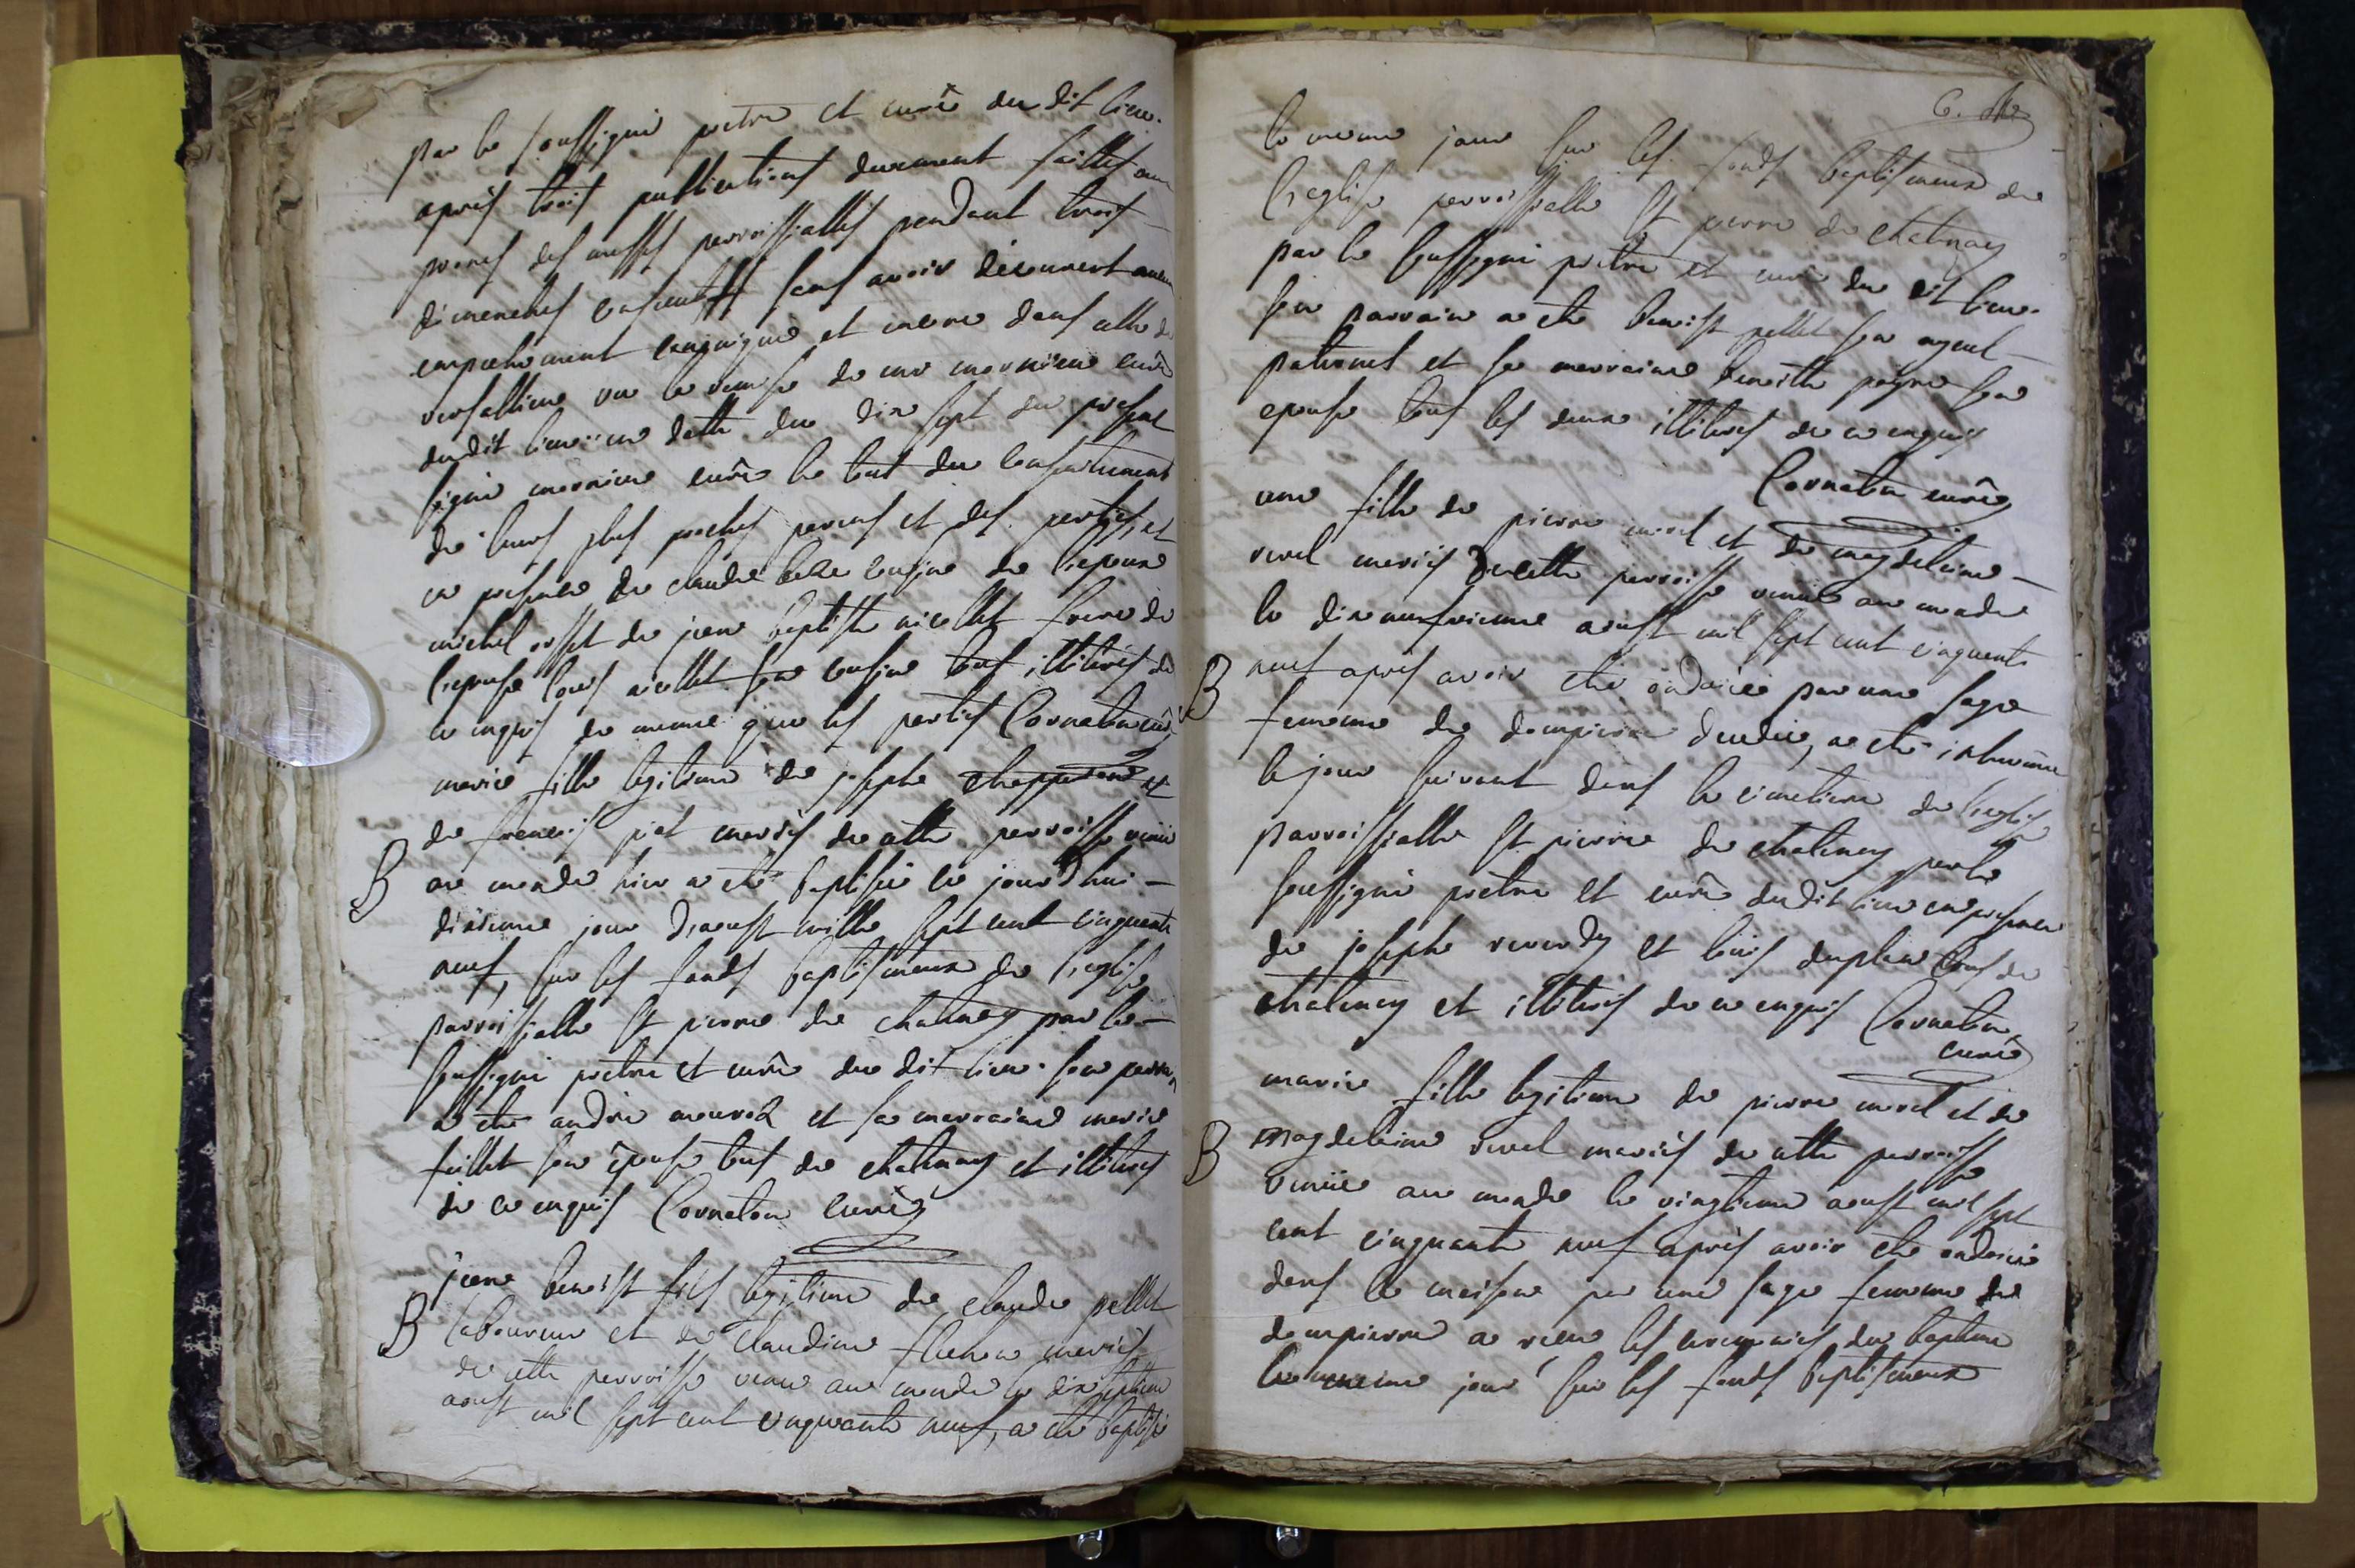 par le soussigné pretre et curé du dit lieu.
apres trois publications duement faittes aux
prones des messes parroissialles pendant trois
dimenches consecutifs sans avoir découvert aucun
empechement canonique et meme dans celle de
versallieux vu la remise de mr mornieux curé
dudit lieu en datte du dix sept du present
signé mornieux curé le tout du consentement
de leurs plus proches parens et des parties, et
en presence de claude cousin de l'epoux
michel de jean baptiste nicollet frere de
l'epouse louis nicollet son cousin tous illiterés de
ce enquis de meme que les parties Cornaton curé
marie fille legitime de josephe et
de françois marriés de cette parroisse venüe
B au monde hier a été baptisée ce jourd'hui
dixieme jour d'aoust mille sept cent cinquante
neuf, sur les fonds baptismaux de l'eglise
parroissialle st pierre de chatenay par le
soussigné pretre et curé du dit lieu. son parrain
a été andré et sa marraine marie
feillet son épouse tous de chatenay et illiterés
de ce enquis Cornaton curé
jean benoist fils legitime de claude pellet
B laboureur et de claudine mariés
de cette parroisse venu au monde le dix septieme
aoust mil sept cent cinquante neuf, a été baptisé
6.
le meme jour sur les fonds baptismaux de
l'eglise parroissialle st pierre de chatenay
par le soussigné pretre et curé du dit lieu.
son parrain a été benoist pellet son ayeul
paternel et sa marraine benoitte son
epouse tous les deux illiterés de ce enquis
Cornaton curé
une fille de pierre morel et de magdeleine
revel mariés de cette parroisse venüe au monde
le dixneufvieme aoust mil sept cent cinquante
B neuf apres avoir été ondoiée par une sage
femme de dompierre décedée, a été inhumée
le jour suivant dans le cimetiere de l'eglise
parroissialle st pierre de chatenay par le
soussigné prètre et curé dudit lieu en presence
de josephe reverdy et louis tous de
chatenay et illiterés de ce enquis Cornaton
curé
marie fille legitime de pierre morel et de
B magdeleine revel mariés de cette parroisse
venüe au monde le vingtieme aoust mil sept
cent cinquante neuf après avoir été ondoiée
dans la maison par une sage femme de
dompierre a recu les ceremonies du baptême
le meme jour sur les fonds baptismaux